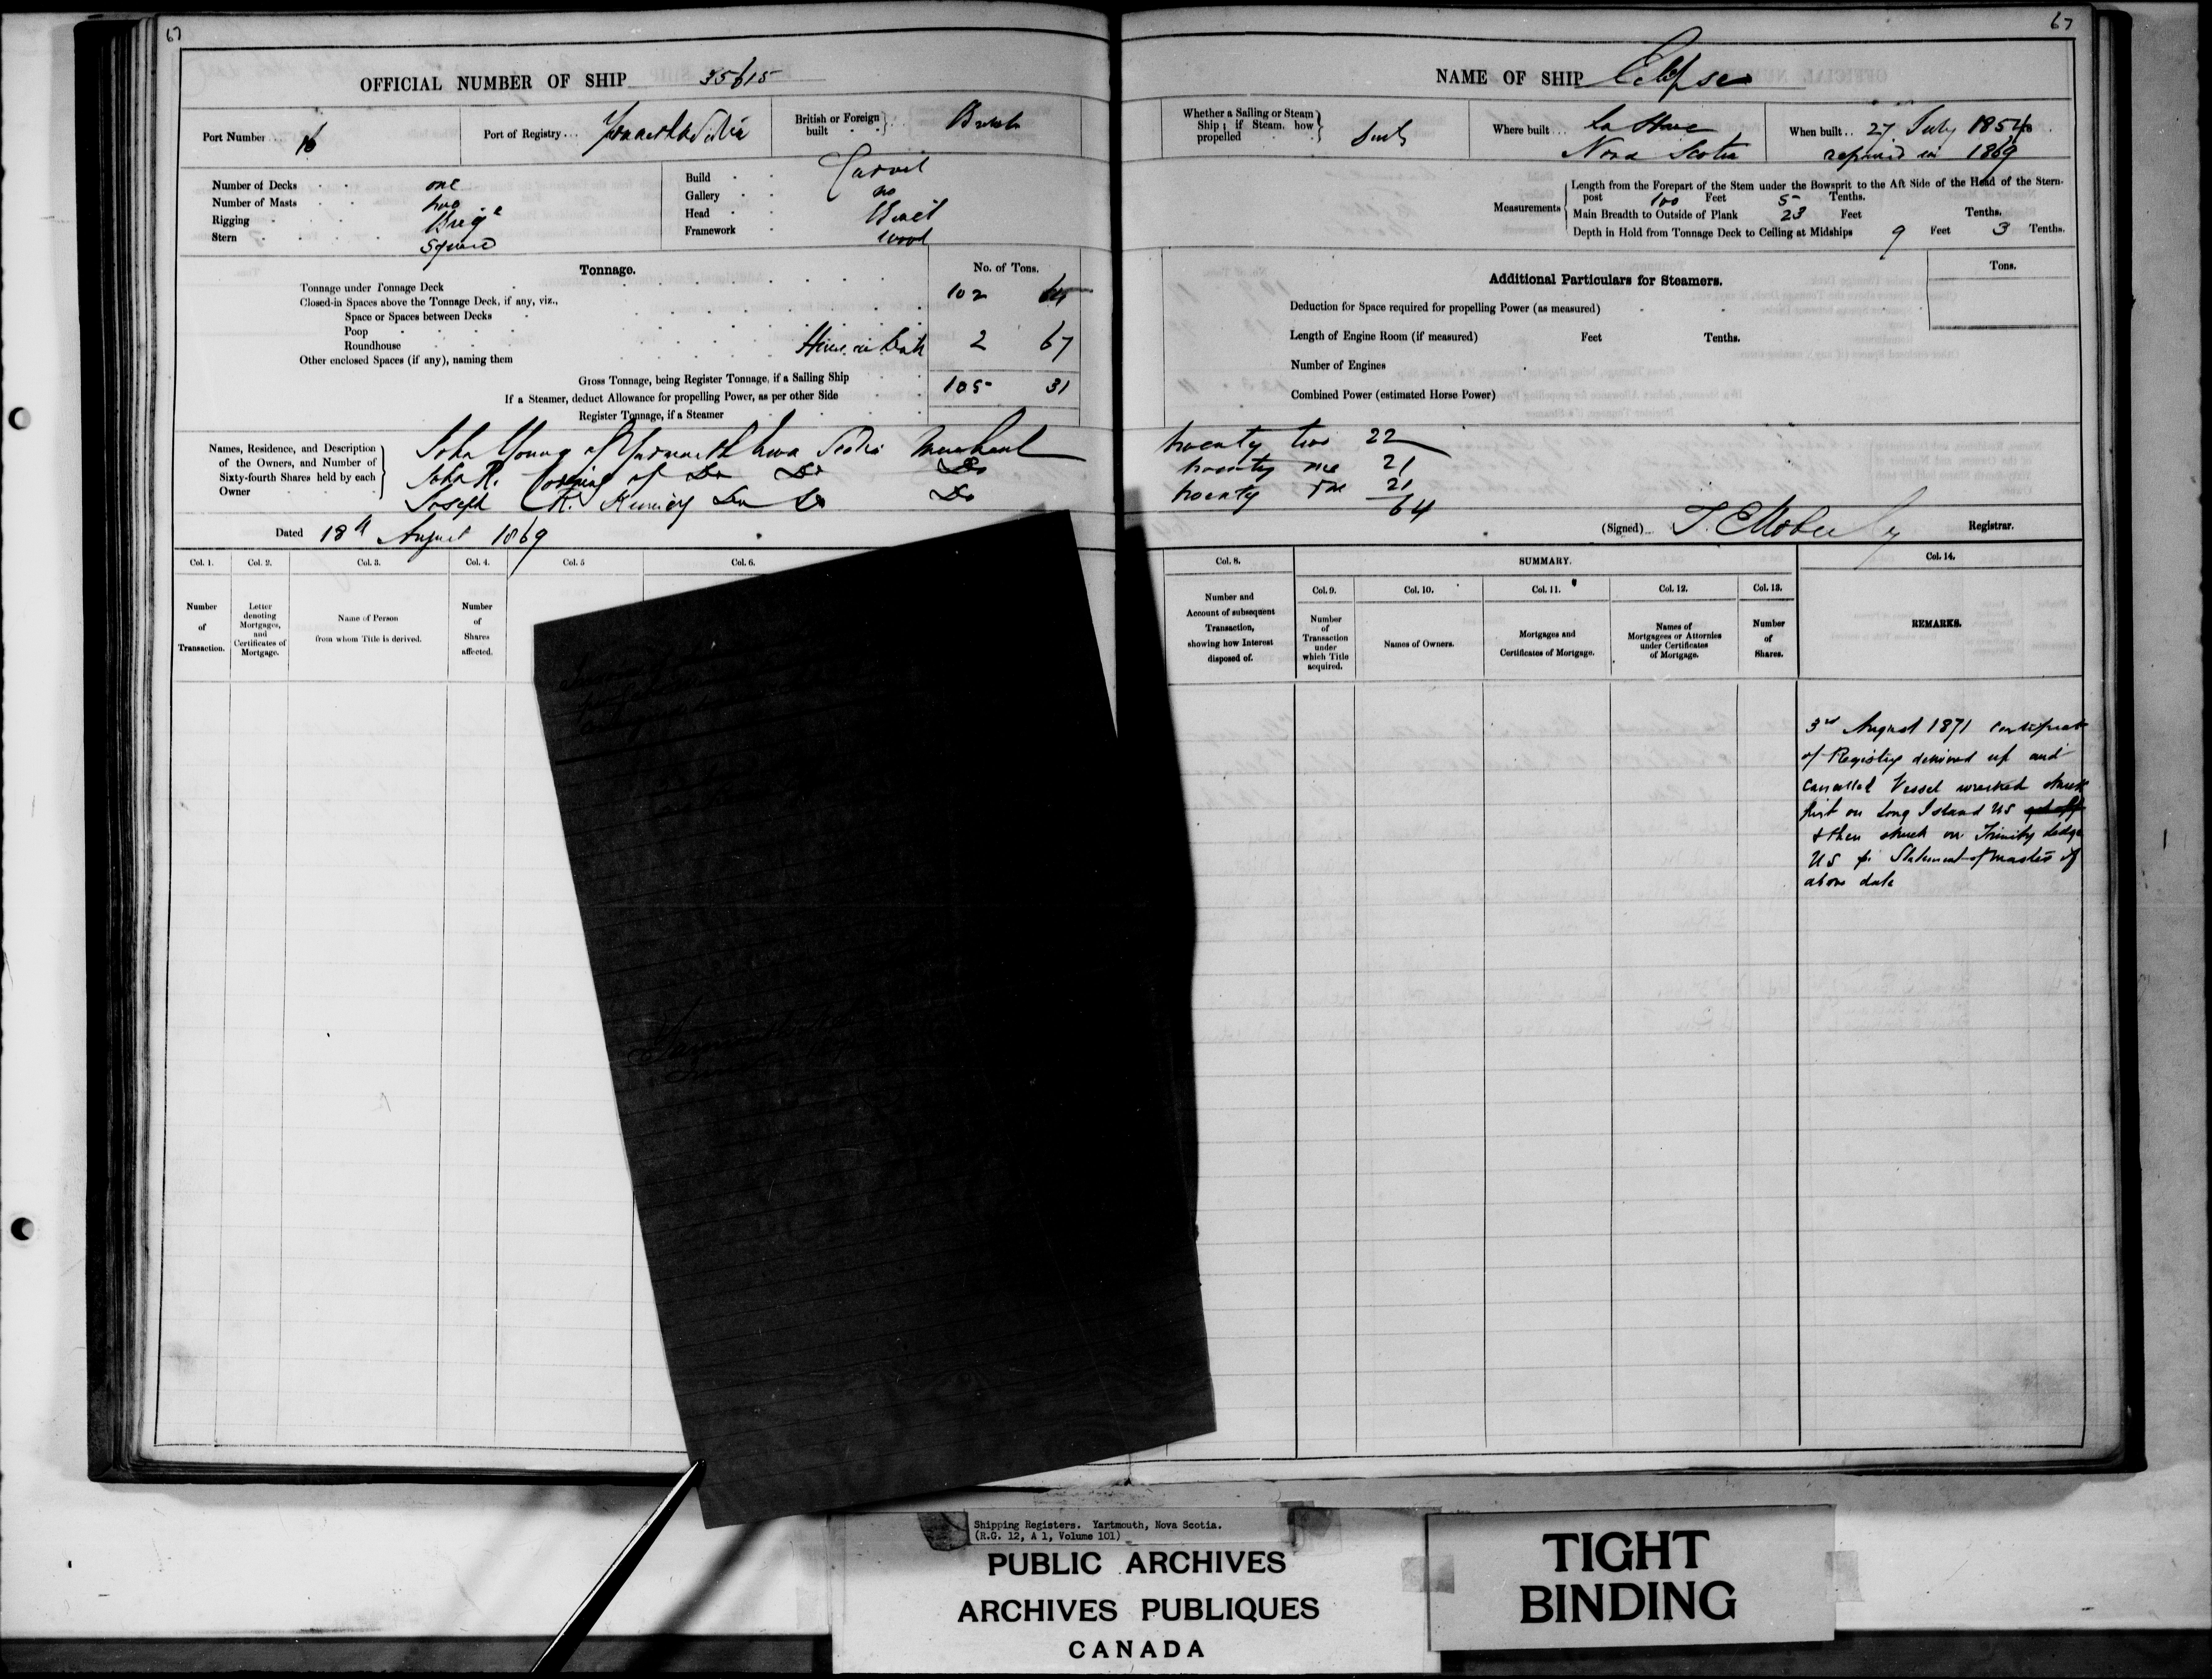 67
OFFICIAL NUMBER OF SHIP 35615
Port Number 16
Port of Registry Yarmouth
British or Foreign built British
Number of Decks one
Number of Masts two
Rigging Brige
Stern Square
Build Carvel
Gallery no
Head
Framework wood
Tonnage.
No. of Tons.
Tonnage under Tonnage Deck 102 64
Closed-in Spaces above the Tonnage Deck, if any, viz.,
Space or Spaces between Decks
Poop
Roundhouse House on Deck 2 67
Other enclosed Spaces (if any), naming them
Gross Tonnage, being Register Tonnage, if a Sailing Ship 105 31
If a Steamer, deduct Allowance for propelling Power, as per other Side
Register Tonnage, if a Steamer
Names, Residence, and Description of the Owners, and Number of Sixty-fourth Shares held by each Owner
John Young of Yarmouth Nova Scotia Merchant
John K. of Do Do Do
Joseph R. Do Do Do
Dated 18th August 1869
Col. 1.
Col. 2.
Col. 3.
Col. 4.
Col. 5
Col. 6.
Number of Transaction.
Letter denoting Mortgages, and Certificates of Mortgage.
Name of Person from whom Title is derived.
Number of Shares affected.
67
NAME OF SHIP Eclipse
Whether a Sailing or Steam Ship; if Steam, how propelled
Where built La Have
Nova Scotia
When built 27 July 1854
repaired in 1869
Measurements
Length from the Forepart of the Stem under the Bowsprit to the Aft Side of the Head of the Stern-
post 100 Feet 5 Tenths.
Main Breadth to Outside of Plank 23 Feet Tenths.
Depth in Hold from Tonnage Deck to Ceiling at Midships 9 Feet 3 Tenths.
Additional Particulars for Steamers.
Tons.
Deduction for Space required for propelling Power (as measured)
Length of Engine Room (if measured) Feet Tenths.
Number of Engines
Combined Power (estimated Horse Power)
twenty two 22
twenty one 21
twenty one 21
64
(Signed) Registrar.
Col. 8.
SUMMARY.
Col. 14.
Col. 9.
Col. 10.
Col. 11.
Col. 12.
Col. 13.
Number and Account of subsequent Transaction, showing how Interest disposed of.
Number of Transaction under which Title acquired.
Names of Owners.
Mortgages and Certificates of Mortgage.
Names of Mortgagees or Attornies under Certificates of Mortgage.
Number of Shares.
REMARKS.
3rd August 1871 Certificate
of Registry delivered up and
cancelled Vessel wrecked struck
first on Long Island NS
& then struck on Trinity ledge
NS pr Statement of master of
above date
Shipping Registers. Yartmouth, Nova Scotia.
(R.G. 12, A 1, Volume 101)
PUBLIC ARCHIVES
ARCHIVES PUBLIQUES
CANADA
TIGHT
BINDING